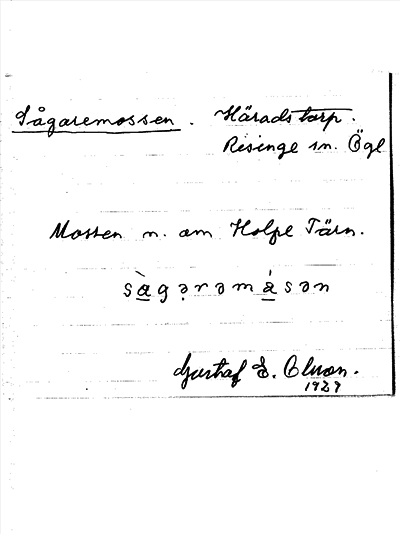 Sågaremossen. Häradstorp.
Risinge sn. Ögl
Mossen n. om Holpe Tärn.
sàgərəmásən
Gustaf E. Olsson.
1929